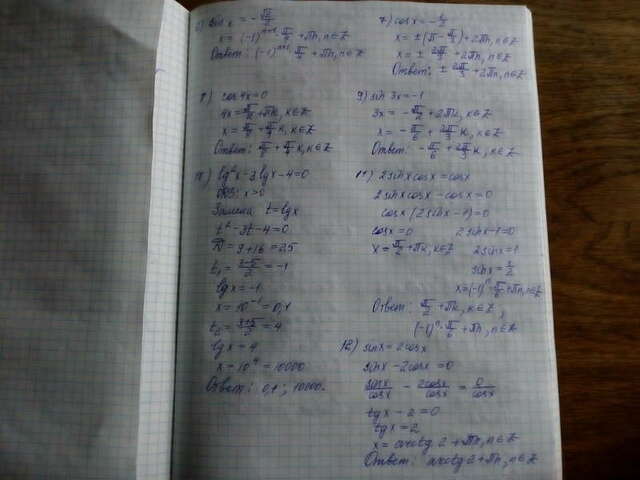 sin x = -√2/2
x = (-1)ⁿ⁺¹ · π/4 + πn, n∈Z
Ответ: (-1)ⁿ⁺¹ π/4 + πn, n∈Z
7) cos x = -1/2
x = ±(π - π/3) + 2πn, n∈Z
x = ± 2π/3 + 2πn, n∈Z
Ответ: ± 2π/3 + 2πn, n∈Z
8) cos 4x = 0
4x = π/2 + πk, k∈Z
x = π/8 + π/4 k, k∈Z
Ответ: π/8 + π/4 k, k∈Z
9) sin 3x = -1
3x = -π/2 + 2πk, k∈Z
x = -π/6 + 2π/3 k, k∈Z
Ответ: -π/6 + 2π/3 k, k∈Z
10) lg²x - 3lgx - 4 = 0
ОДЗ: x>0
Замена t = lgx
t² - 3t - 4 = 0
D = 9 + 16 = 25
t₁ = (3-5)/2 = -1
lgx = -1
x = 10⁻¹ = 0,1
t₂ = (3+5)/2 = 4
lgx = 4
x = 10⁴ = 10000
Ответ: 0,1; 10000.
11) 2sinxcosx = cosx
2sinxcosx - cosx = 0
cosx(2sinx - 1) = 0
cosx = 0 2sinx - 1 = 0
x = π/2 + πk, k∈Z 2sinx = 1
sinx = 1/2
x = (-1)ⁿ · π/6 + πn, n∈Z
Ответ: π/2 + πk, k∈Z,
(-1)ⁿ · π/6 + πn, n∈Z
12) sinx = 2cosx
sinx - 2cosx = 0
sinx/cosx - 2cosx/cosx = 0/cosx
tgx - 2 = 0
tgx = 2
x = arctg 2 + πn, n∈Z
Ответ: arctg 2 + πn, n∈Z